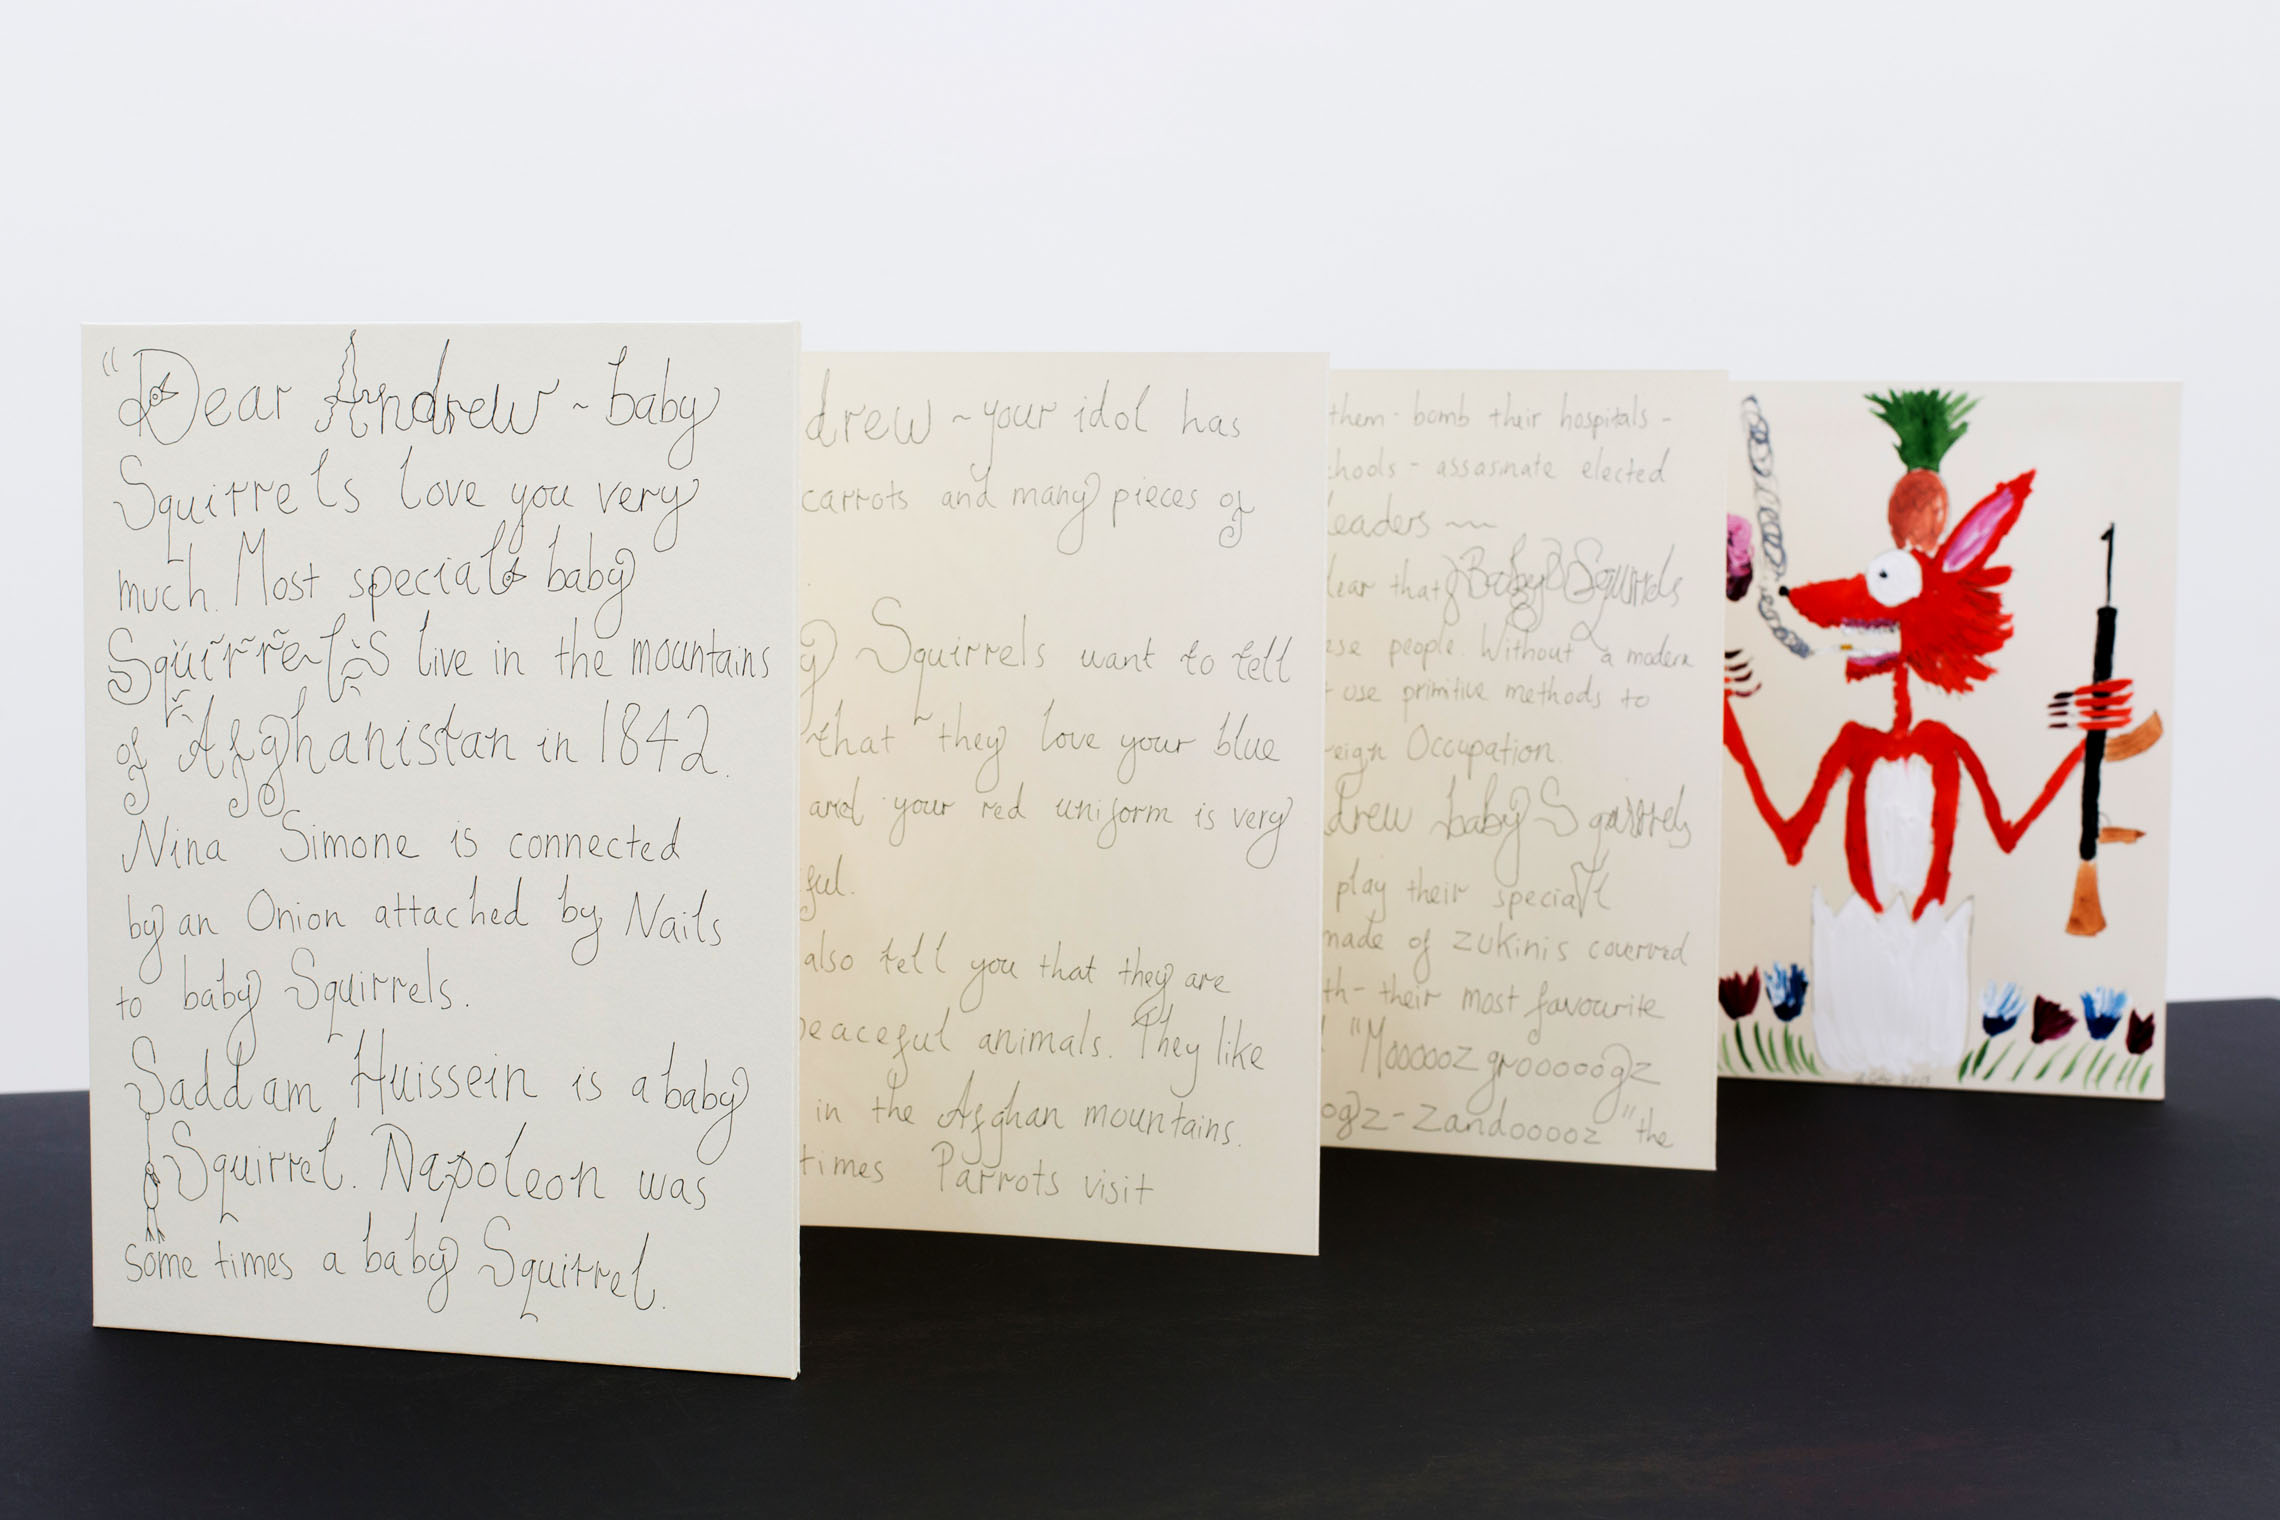 "Dear Andrew ~ baby
Squirrels love you very
much. Most special baby
Squirrels live in the mountains
of Afghanistan in 1842.
Nina Simone is connected
by an Onion attached by Nails
to baby Squirrels.
Saddam Huissein is a baby
Squirrel. Napoleon was
some times a baby Squirrel.
drew ~ your idol has
carrots and many pieces of
y Squirrels want to tell
that they love your blue
and your red uniform is very
ful.
also tell you that they are
peaceful animals. They like
in the Afghan mountains.
times Parrots visit
them - bomb their hospitals -
chools - assasinate elected
leaders ~~
lear that Baby Squirrels
ese people. Without a modern
use primitive methods to
reign Occupation.
drew baby Squirrels
play their special
made of zukinis coverved
th - their most favourite
"Mooooozgrooooogz
ogz - zandooooz" the